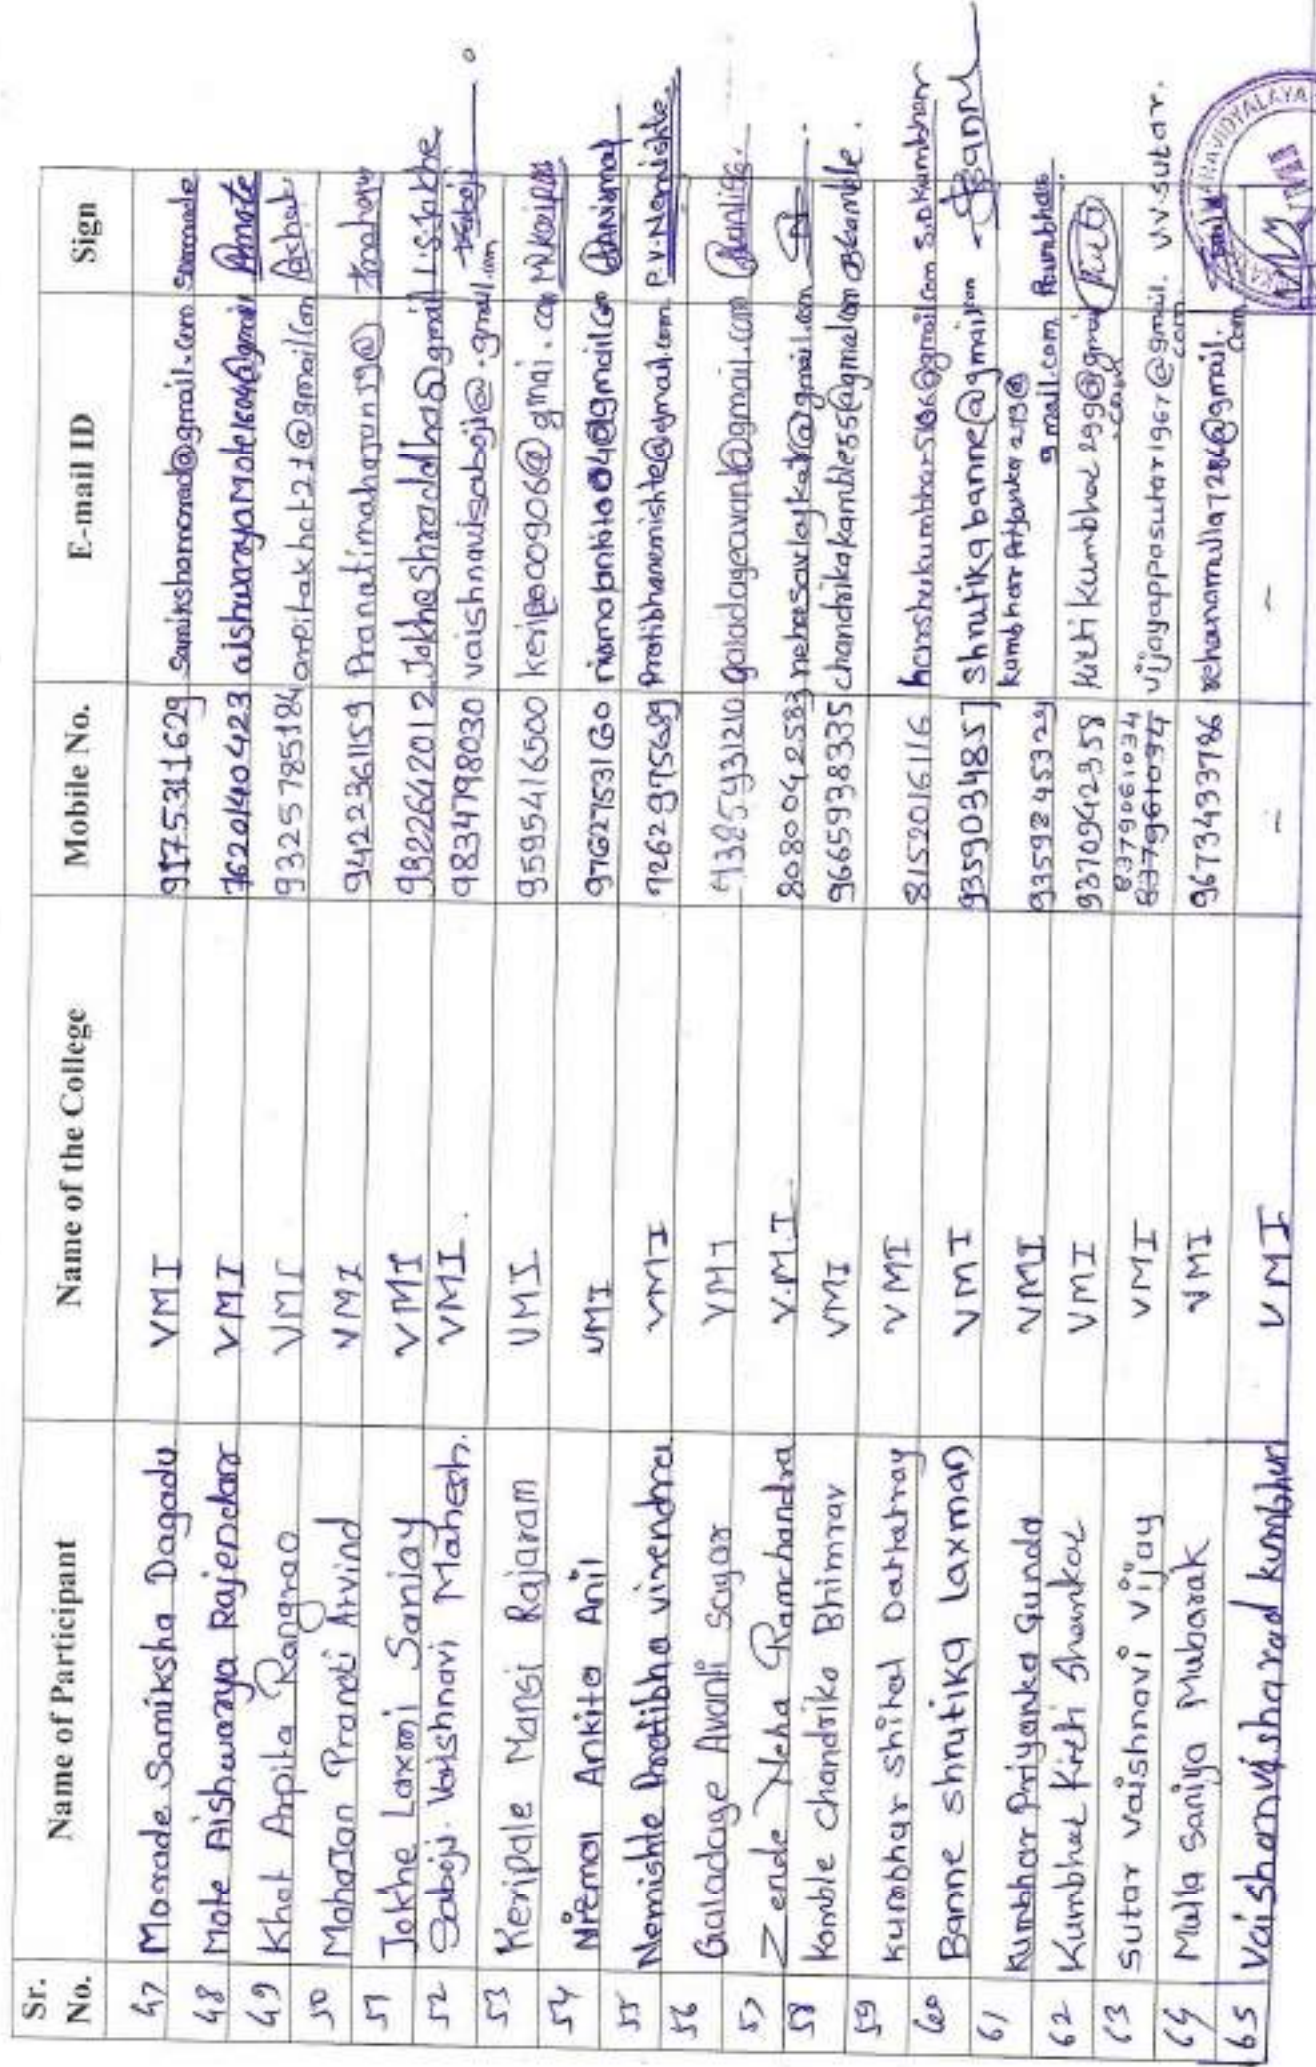 Sr. No. Name of Participant Name of the College Mobile No. E-mail ID Sign
47 Morade Samiksha Dagadu VMI 9175311629 Samikshamorad@gmail.com
48 Mote Aishwarya Rajendar VMI 7620140423 aishwaryamote1604@gmail Amote
49 Khot Arpita Rangrao VMI 9325785184 arpitakhot21@gmail.com
50 Mahajan Pranati Arvind VMI 9422361159 Pranatimahajan19@
51 Jokhe Laxmi Sanjay VMI 9322642012 Jokheshraddha@gmail L.S.Jokhe
52 Saboji Vaishnavi Mahesh. VMI. 9834798030 vaishnavisaboji@.gmail.com
53 Keripale Mansi Rajaram VMI 9595416500 @gmai.com
54 Nirmal Ankita Anil VMI
55 Nemishte Pratibha virendra VMI 7262975689 Pratibhanemishte@gmail.com P.V.Nemishte.
56 Galadage Avanti Sagar VMI galadageavanti@gmail.com
57 Zende Neha Ramchandra V.M.I. 8080042583 @gmail.com
58 Kamble chandrika Bhimrav VMI 9665938335 chandrikakamble55@gmal.com
59 Kumbhar Shital Dattatray VMI 8152016116 harshukumbhar5186@gmail.com S.D.Kumbhar
60 Banne Shrutika Laxman VMI 9359034857 Shrutikabanne@gmail.com Banne
61 Kumbhar Priyanka Gunda VMI 9359845324 kumbharpriyanka213@
gmail.com
62 Kumbhar Kirti Shankar VMI 9370942358 Kirtikumbhar299@gmail
.com
63 Sutar Vaishnavi Vijay VMI 8379061034
vijayappasutar1967@gmail.
com V.V.Sutar.
64 Mulla Saniya Mubarak VMI 9673433786 rehanamulla7286@gmail.
com
65 Vaishanvi sharad kumbhar VMI - -
MAHAVIDYALAYA